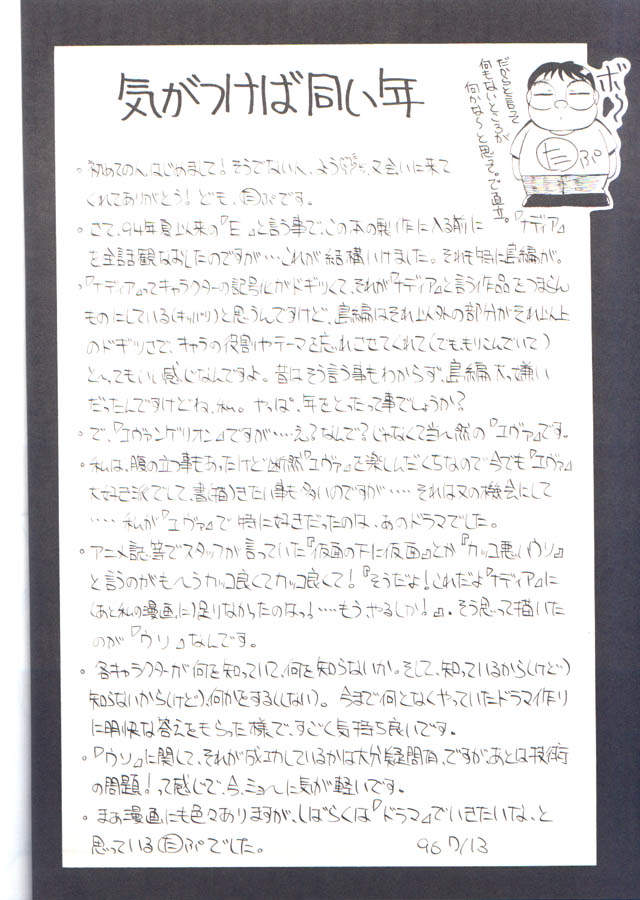 気がつけば同い年
ボ〜
だからと言って
何もないところが
何かな〜と思って。で直立。
たぷ
・初めての人、はじめまして!そうでない人、ようこそ、又会いに来て
くれてありがとう!ども、たぷです。
・さて、94年夏以来の『E』と言う事で、この本の製作に入る前に『ナディア』
を全話観なおしたのですが…これが結構いけました。それも特に島編が。
・『ナディア』ってキャラクターの記号化がドギツくて、それが『ナディア』と言う作品をつまらん
ものにしている(キッパリ)と思うんですけど、島編はそれ以外の部分がそれ以上
のドギツさで、キャラの役割やテーマを忘れさせてくれて(でももりこんでいて)
と〜ってもいい感じなんですよ。昔はそう言う事もわからず、島編大っ嫌い
だったんですけどね、私。やっぱ、年をとったって事でしょうか?
・で、『エヴァンゲリオン』ですが……え?なんで?じゃなくて当〜然の『エヴァ』です。
・私は、腹の立つ事もあったけど断然『エヴァ』を楽しんだくちなので今でも『エヴァ』
大好き派でして、書(描)きたい事も多いのですが……それは又の機会にして
……私が『エヴァ』で特に好きだったのは、あのドラマでした。
・アニメ誌等でスタッフが言っていた『仮面の下に仮面』とか『カッコ悪いウソ』
と言うのがも〜うカッコ良くてカッコ良くて!『そうだよ!これだよ『ナディア』に
(あと私の漫画に)足りなかったのはっ!……もう、やるしか!』。そう思って描いた
のが『ウソ』なんです。
・各キャラクターが何を知っていて、何を知らないか。そして、知っているから(けど)
知らないから(けど)、何かをする(しない)。今まで何となくやっていたドラマ作り
に明快な答えをもらった様で、すごく気持ち良いです。
・『ウソ』に関して、それが成功しているかは大分疑問有、ですが、あとは技術
の問題!って感じで、今、ミョ〜に気が軽いです。
・まあ漫画にも色々ありますが、しばらくは『ドラマ』でいきたいな、と
思っているたぷでした。
96 7/13